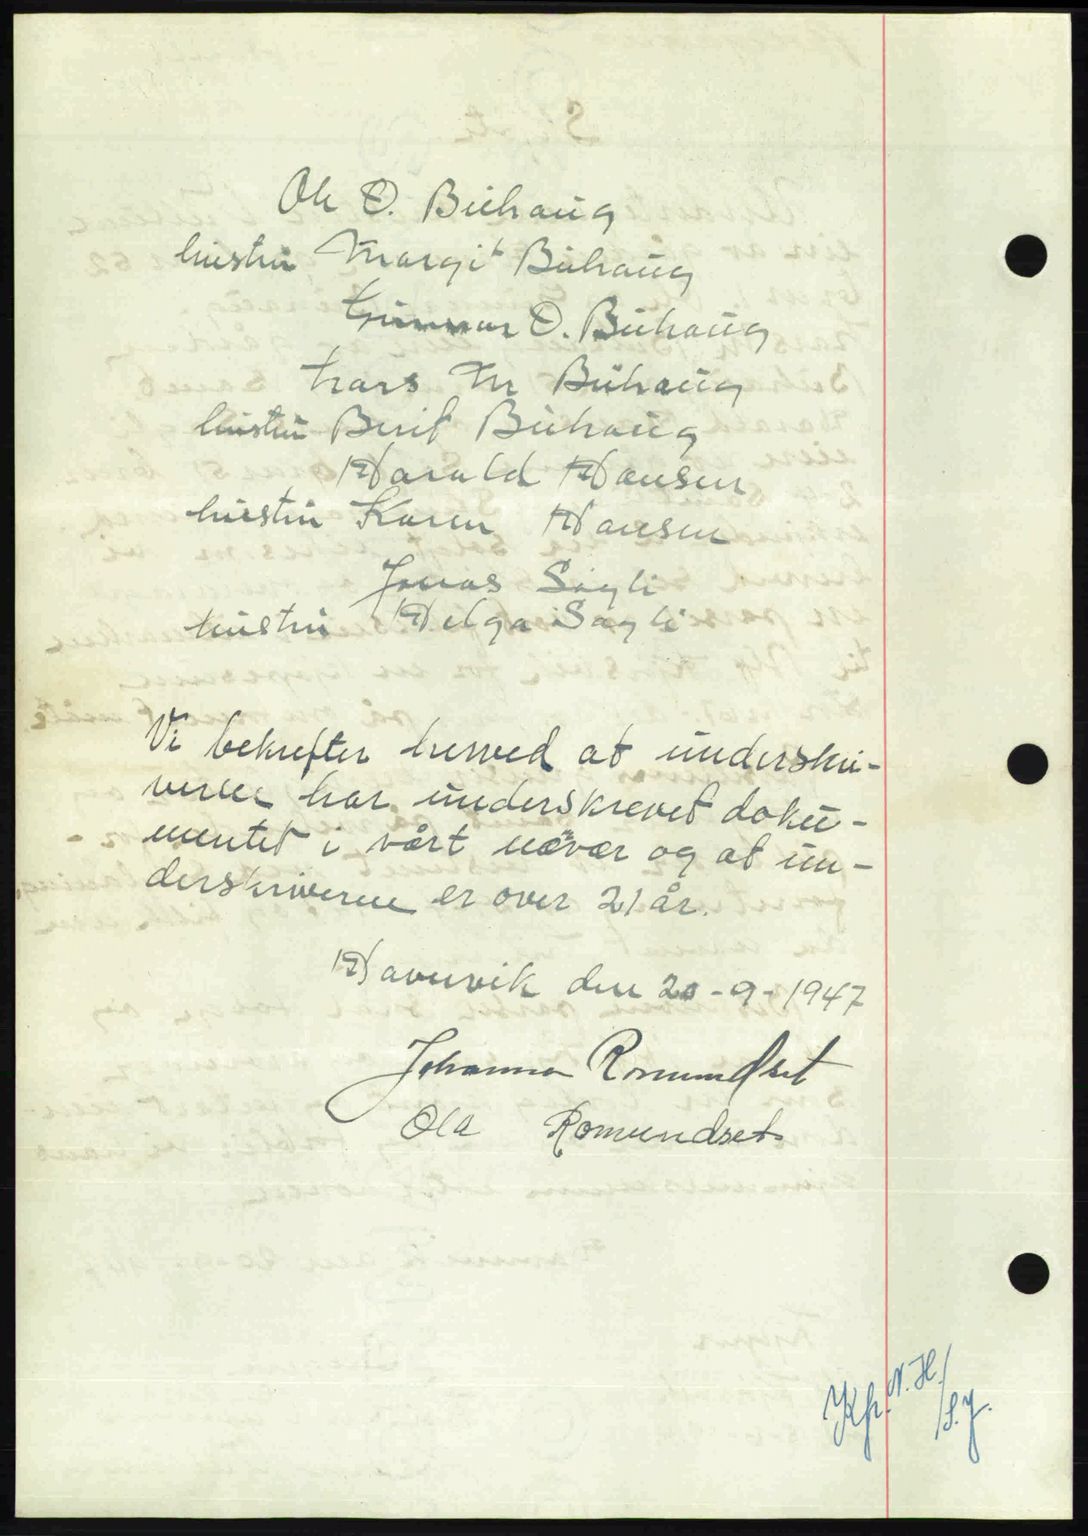 Ole O. Buhaug
hustru Margit Buhaug
Gunnar O. Buhaug
Lars M Buhaug
hustru Berit Buhaug
Harald Hansen
hustru Karen Hansen
Jonas Sagli
hustru Helga Sagli
Vi bekrefter herved at underskri-
verne har underskrevet doku-
mentet i vårt nævær og at un-
derskriverne er over 21 år.
Havnvik den 20-9-1947
Johanna Romundset
Ola Romundset
Kfr. N. H./
/S.J.